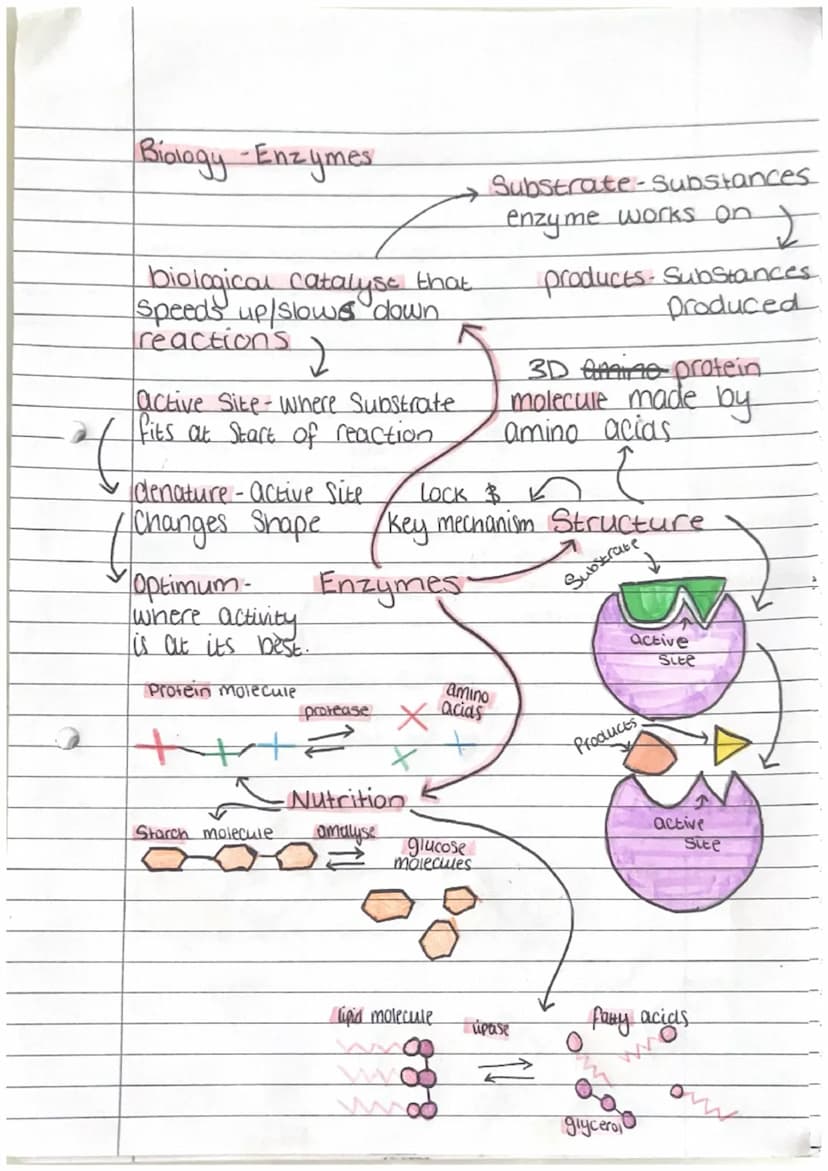 Biology - Enzymes
Substrate - Substances
enzyme works on
biological catalyse that
speeds up/slows down
reactions
products - Substances
produced
3D amino protein
molecule made by
amino acids
active Site - where Substrate
fits at start of reaction
denature - active site
Changes Shape
Lock &
key mechanism
Structure
Optimum -
where activity
is at its best.
Enzymes
Substrate
active
site
Protein molecule
protease
amino
acids
Products
Nutrition
active
site
Starch molecule
amalyse
glucose
molecules
lipid molecule
lipase
fatty acids
glycerol